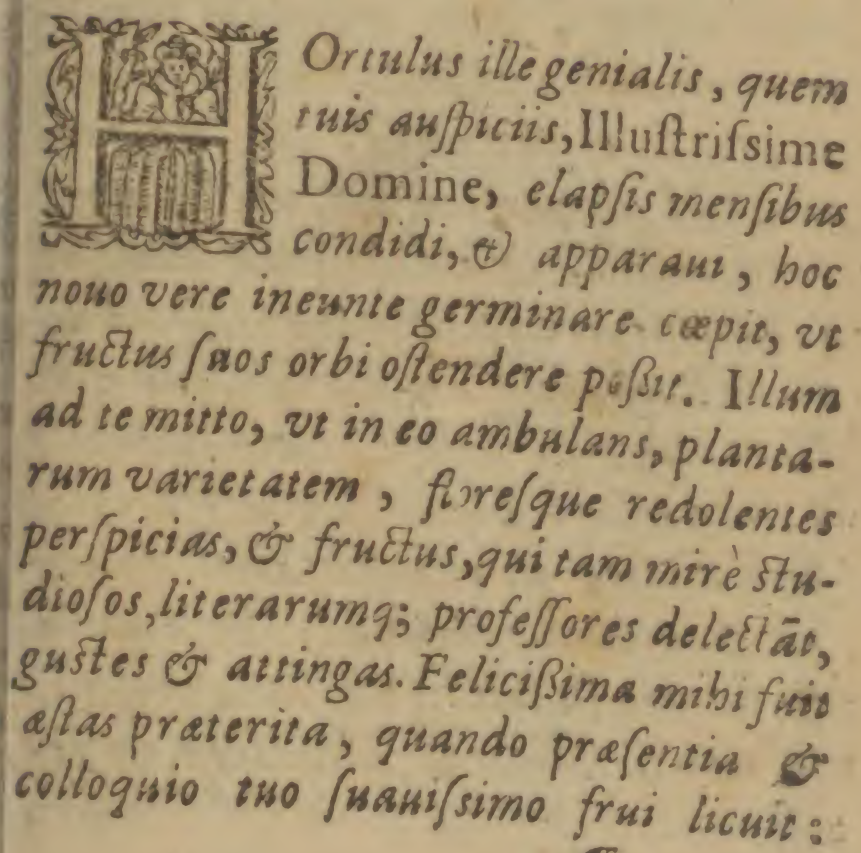 HOrtulus ille genialis, quem
tuis auſpiciis, Illuſtriſsime
Domine, elapſis menſibus
condidi, & apparaui, hoc
nouo vere ineunte germinare cœpit, vt
fructus ſuos orbi oſtendere poßit. Illum
ad te mitto, vt in eo ambulans, planta-
rum varietatem, floreſque redolentes
perſpicias, & fructus, qui tam mirè ſtu-
dioſos, literarumq; profeſſores delectāt,
guſtes & attingas. Felicißima mihi fuit
æſtas præterita, quando præſentia &
colloquio tuo ſuauiſsimo frui licuit: